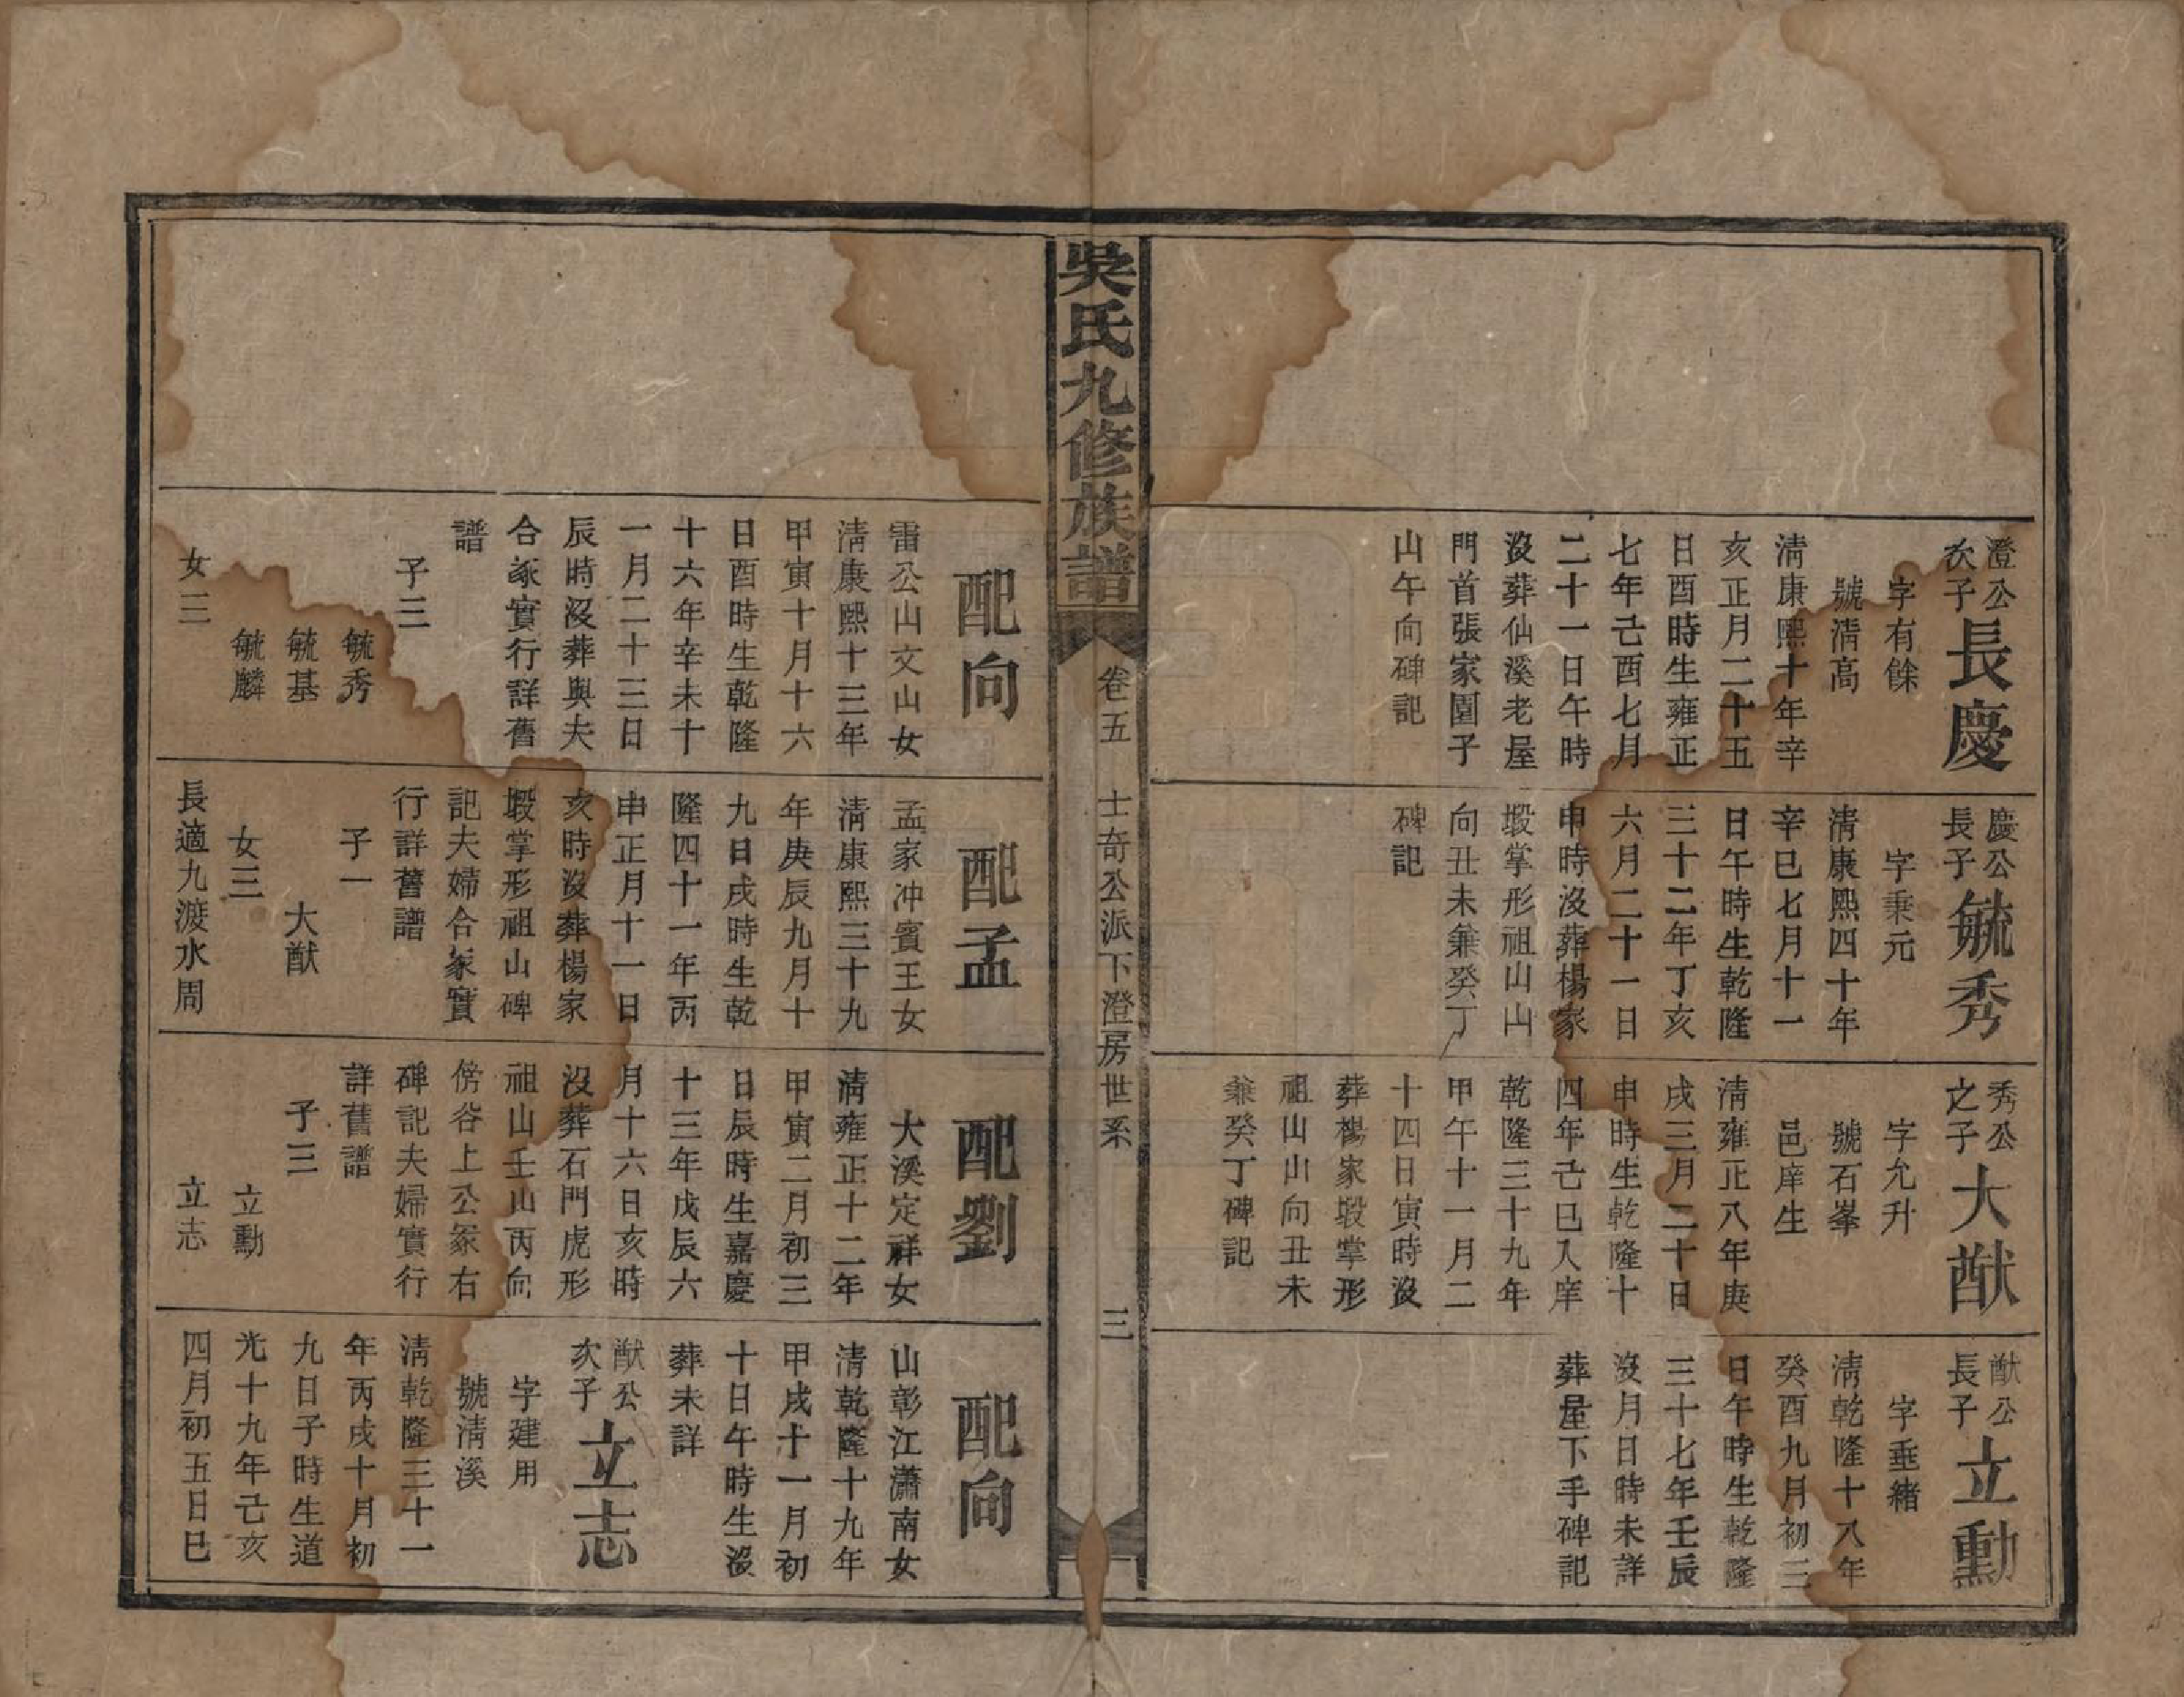 澄公次子
長慶
字有餘
號淸高
淸康熙十年辛
亥正月二十五
日酉時生雍正
七年己酉七月
二十一日午時
沒葬仙溪老屋
門首張家園子
山午向碑記
慶公長子
毓秀
字秉元
淸康熙四十年
辛巳七月十一
日午時生乾隆
三十二年丁亥
六月二十一日
申時沒葬楊家
塅掌形祖山山
向丑未兼癸丁
碑記
秀公之子
大猷
字允升
號石峯
邑庠生
淸雍正八年庚
戌三月二十日
申時生乾隆十
四年己巳入庠
乾隆三十九年
甲午十一月二
十四日寅時沒
葬楊家塅掌形
祖山山向丑未
兼癸丁碑記
猷公長子
立勳
字垂緖
淸乾隆十八年
癸酉九月初三
日午時生乾隆
三十七年壬辰
沒月日時未詳
葬屋下手碑記
吳氏九修族譜
卷五
士奇公派下澄房世系
三
配向
雷公山文山女
淸康熙十三年
甲寅十月十六
日酉時生乾隆
十六年辛未十
一月二十三日
辰時沒葬與夫
合冢實行詳舊
譜
子三
毓秀
毓基
毓麟
女三
配孟
孟家冲賓王女
淸康熙三十九
年庚辰九月十
九日戌時生乾
隆四十一年丙
申正月十一日
亥時沒葬楊家
塅掌形祖山碑
記夫婦合冢實
行詳舊譜
子一
大猷
女三
長適九渡水周
配劉
大溪定祥女
淸雍正十二年
甲寅二月初三
日辰時生嘉慶
十三年戊辰六
月十六日亥時
沒葬石門虎形
祖山壬山丙向
傍谷上公冢右
碑記夫婦實行
詳舊譜
子三
立勳
立志
配向
山彰江瀟南女
淸乾隆十九年
甲戌十一月初
十日午時生沒
葬未詳
猷公次子
立志
字建用
號淸溪
淸乾隆三十一
年丙戌十月初
九日子時生道
光十九年己亥
四月初五日巳